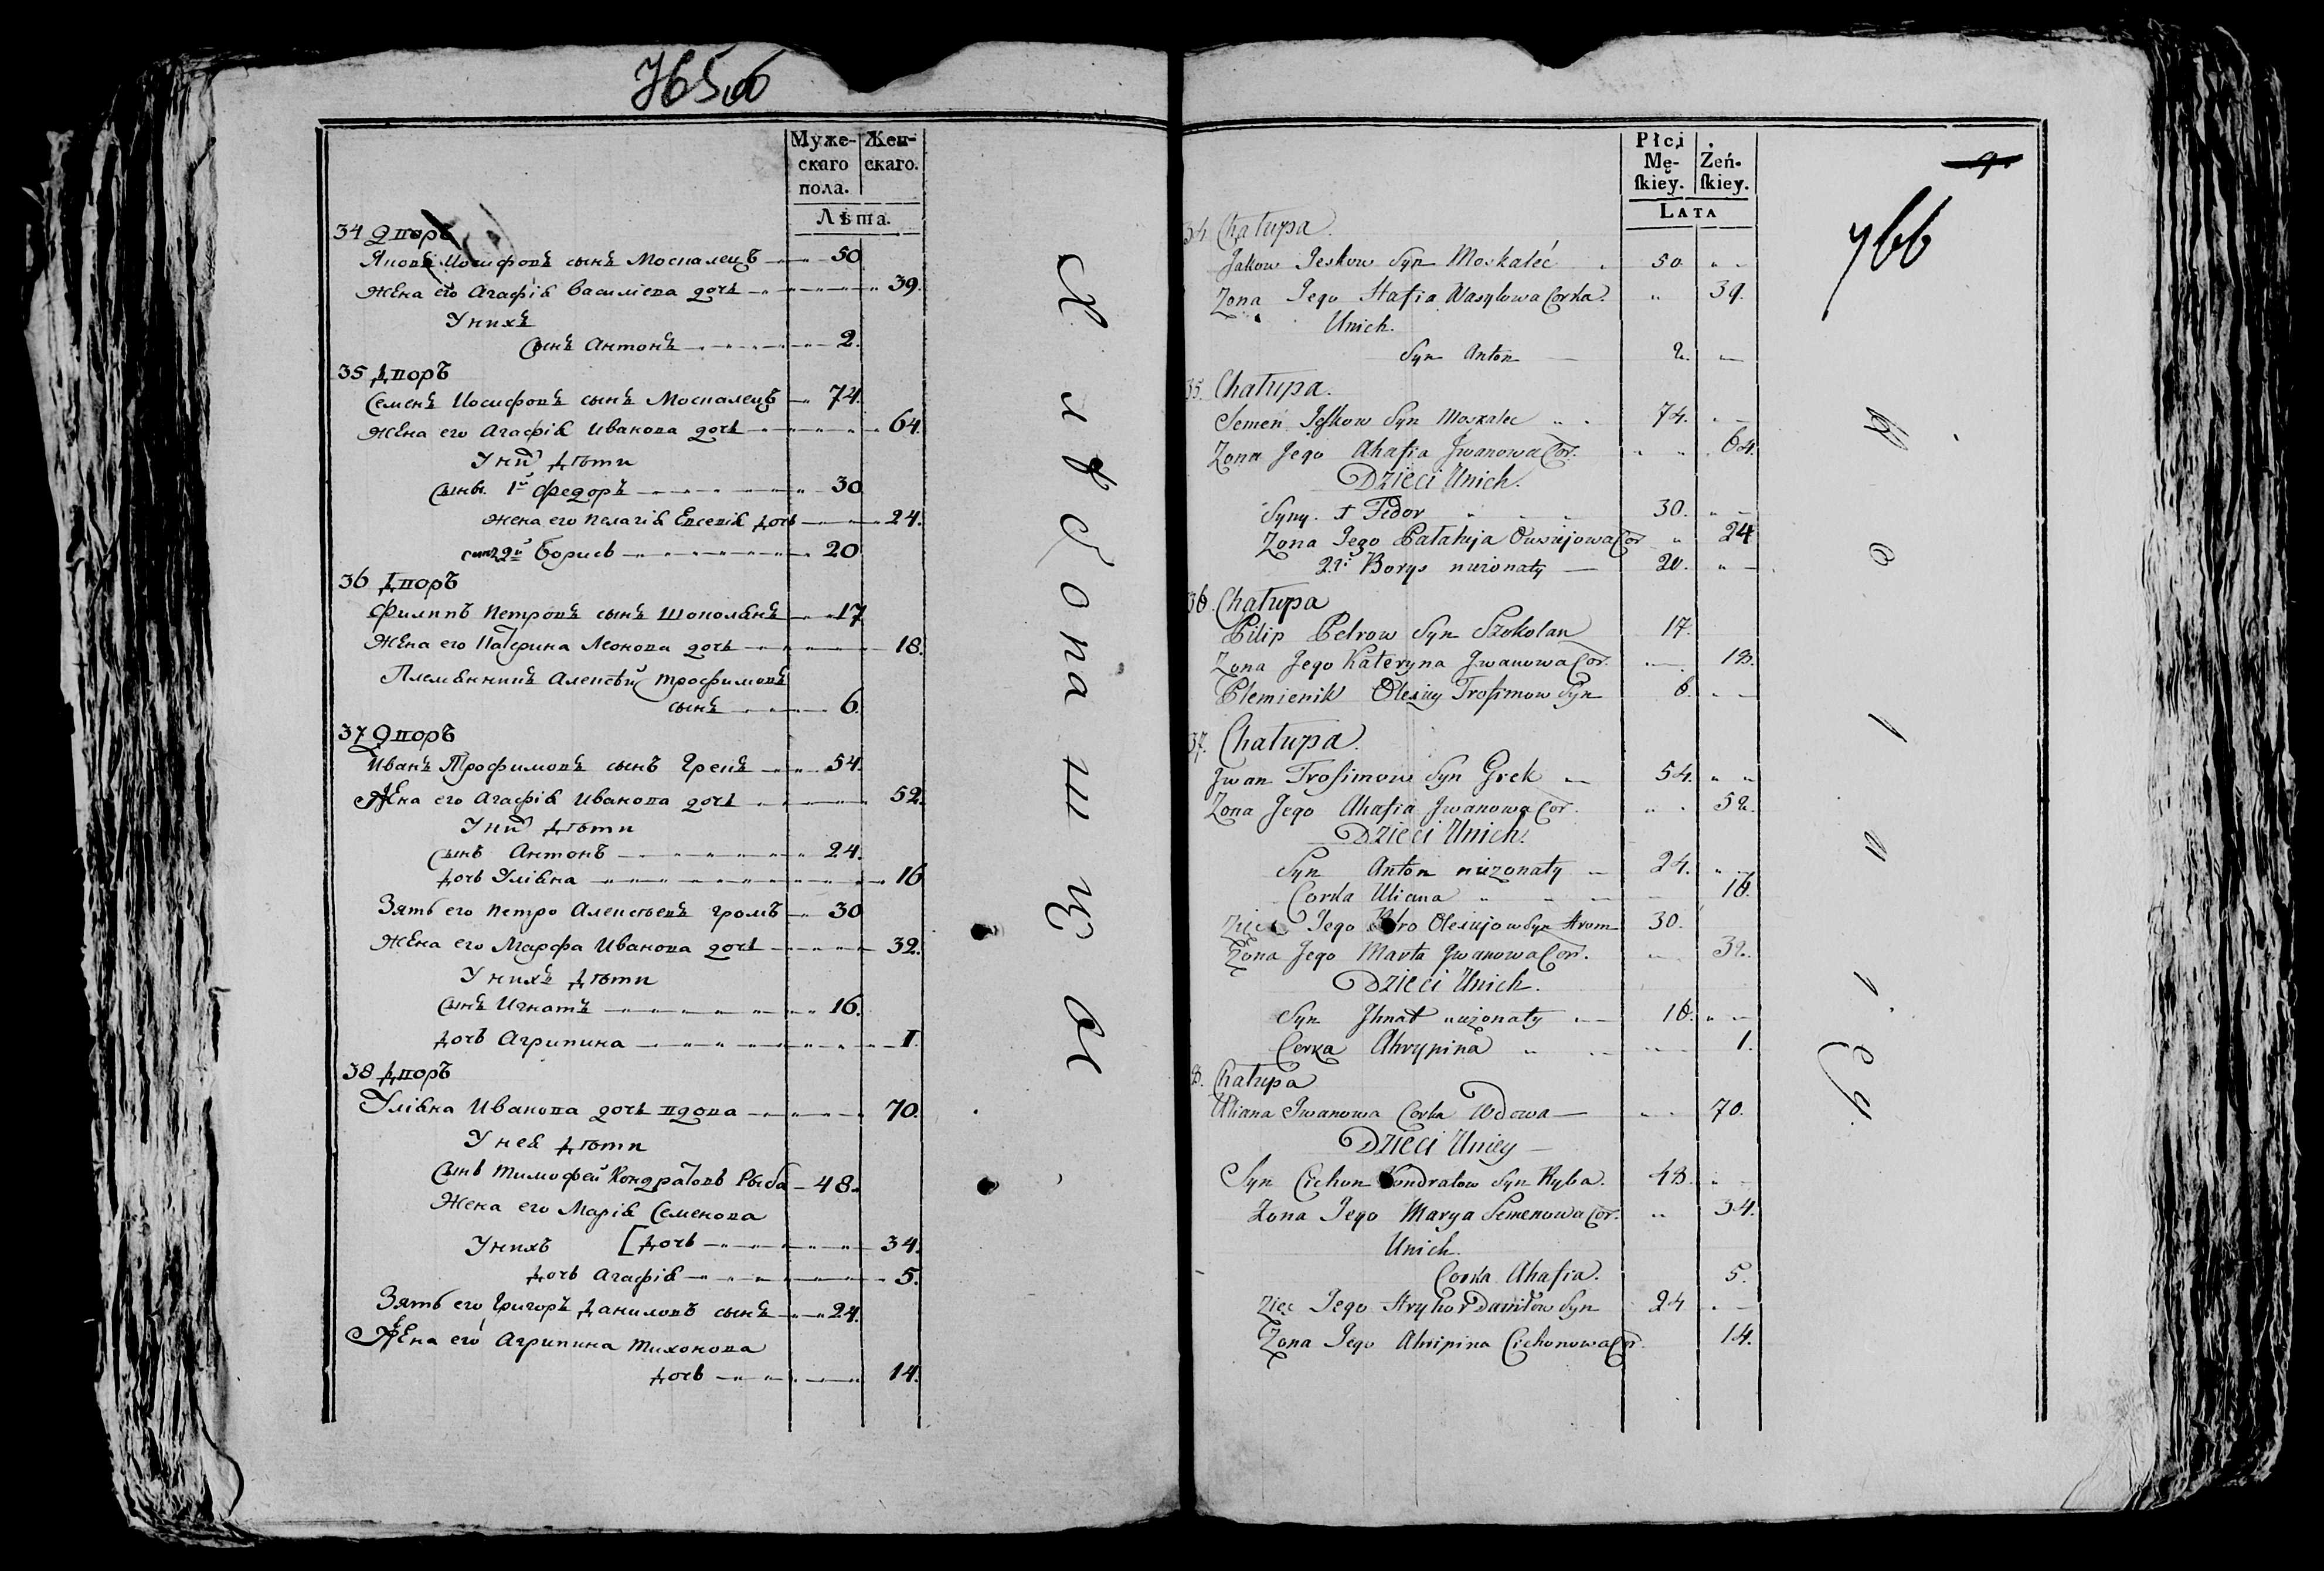 765об
Муже-
скаго
пола.
Жен-
скаго.
Лѣта.
34 Дворъ
Яковъ Иосифовъ сынъ Москалецъ 50
Жена его Агафія Василіева дочь 39.
У нихъ
Сынъ Антонъ 2.
35 Дворъ
Семенъ Иосифовъ сынъ Москалецъ 74.
Жена его Агафія Иванова дочь 64.
У них дѣти
Сынъ. 1й Федоръ 30
Жена его Пелагія Евсевія дочь 24.
сынъ 2й Борисъ 20
36 Дворъ
Филипъ Петровъ сынъ Шоколянъ 17
Жена его Катерина Леонова дочь 18.
Племянникъ Алексѣй Трофимовъ
сынъ 6.
37 Дворъ
Иванъ Трофимовъ сынъ Грекъ 54.
Жена его Агафія Иванова дочь 52.
У них дѣти
Сынъ Антонъ 24.
дочь Уліяна 16
Зять его Петро Алексѣевъ Громъ 30
Жена его Марфа Иванова дочь 32.
У нихъ дѣти
Сынъ Игнатъ 16.
дочь Агрипина 1.
38 Дворъ
Уліяна Иванова дочь вдова 70.
У нея дѣти
Сынъ Тимофей Кондратовъ Рыба 48.
Жена его Марія Семенова
У нихъ [дочь 34.
дочь Агафія 5.
Зять его Григоръ Даниловъ сынъ 24.
Жена его Агрипина Тихонова
дочь 14.
Хлѣбопашцы
Płci
Mę-
skiey.
Żeń-
skiey.
LATA
766
34. Chałupa.
Jakow Jeskow Syn Moskaleć 50
Zona Jego Hafia Wasylowa Corka. 39.
Unich.
Syn Anton 2.
35. Chałupa.
Semen Jeskow Syn Moskalec 74.
Zona Jego Ahafia Jwanowa Cor. 64.
Dzieci Unich.
Syny. 1 Fedor 30.
Zona Jego Pałahija Owsiejowa Cor 24
2gi Borys nieżonaty 20.
36. Chałupa
Pilip Petrow Syn Szokolan 17.
Zona Jego Kateryna Jwanowa Cor. 18.
Plemienik Olexiey Trofimow Syn 6.
37. Chałupa.
Jwan Trofimow Syn Grek 54.
Zona Jego Ahafia Jwanowa Cor. 52.
Dzieci Unich.
Syn Anton nieżonaty 24.
Corka Uliana 16.
Zięc Jego Petro Olexiejow Syn Hrom 30.
Zona Jego Marta Jwanowa Cor. 32.
Dzieci Unich.
Syn Jhnat nieżonaty 16.
Corka Ahrypina 1.
8. Chałupa
Uliana Jwanowa Corka Wdowa 70.
Dzieci Uniey
Syn Cichon Kondratow Syn Ryba. 48.
Zona Jego Marya Semenowa Cor. 34.
Unich.
Corka Ahafia. 5.
Zięc Jego Hryhor Daniłow Syn 24
Zona Jego Ahripina Cichonowa Cor. 14.